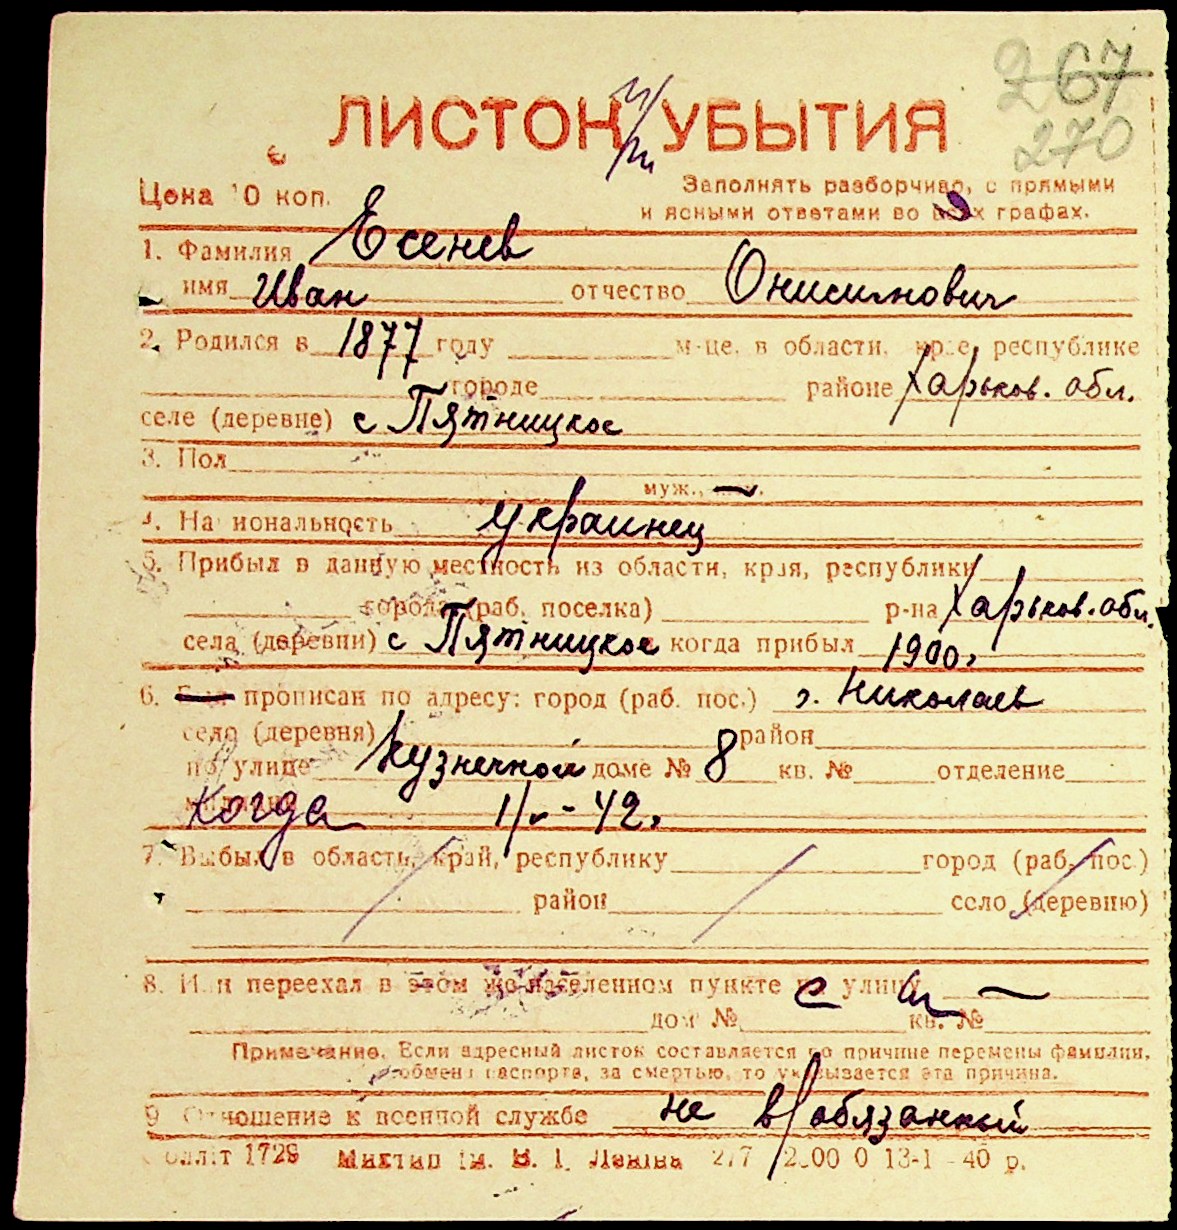 267
270
ЛИСТОК УБЫТИЯ
Цена 10 коп.
Заполнять разборчиво, с прямыми
и ясными ответами во всех графах.
1. Фамилия Есенев
имя Иван отчество Онисимович
2. Родился в 1877 году м-це, в области, крае, республике
городе районе Харьков. обл.
селе (деревне) с Пятницкое
3. Пол
муж.,
4. Национальность украинец
5. Прибыл в данную местность из области, края, республики
города (раб. поселка) р-на Харьков. обл.
села (деревни) с Пятницкое когда прибыл 1900.
6. прописан по адресу: город (раб. пос.) г. Николаев
село (деревня) район
по улице Кузнечной доме № 8 кв. № отделение
Когда 42.
7. Выбыл в область, край, республику город (раб. пос.)
район село (деревню)
8. Или переехал в этом же населенном пункте улицу
дом № кв. №
Примечание. Если адресный листок составляется по причине перемены фамилии,
обмена паспорта, за смертью, то указывается эта причина.
9 Отношение к военной службе не в/обязанный
1729 ім. В. І. Леніна 13-1 -40 р.